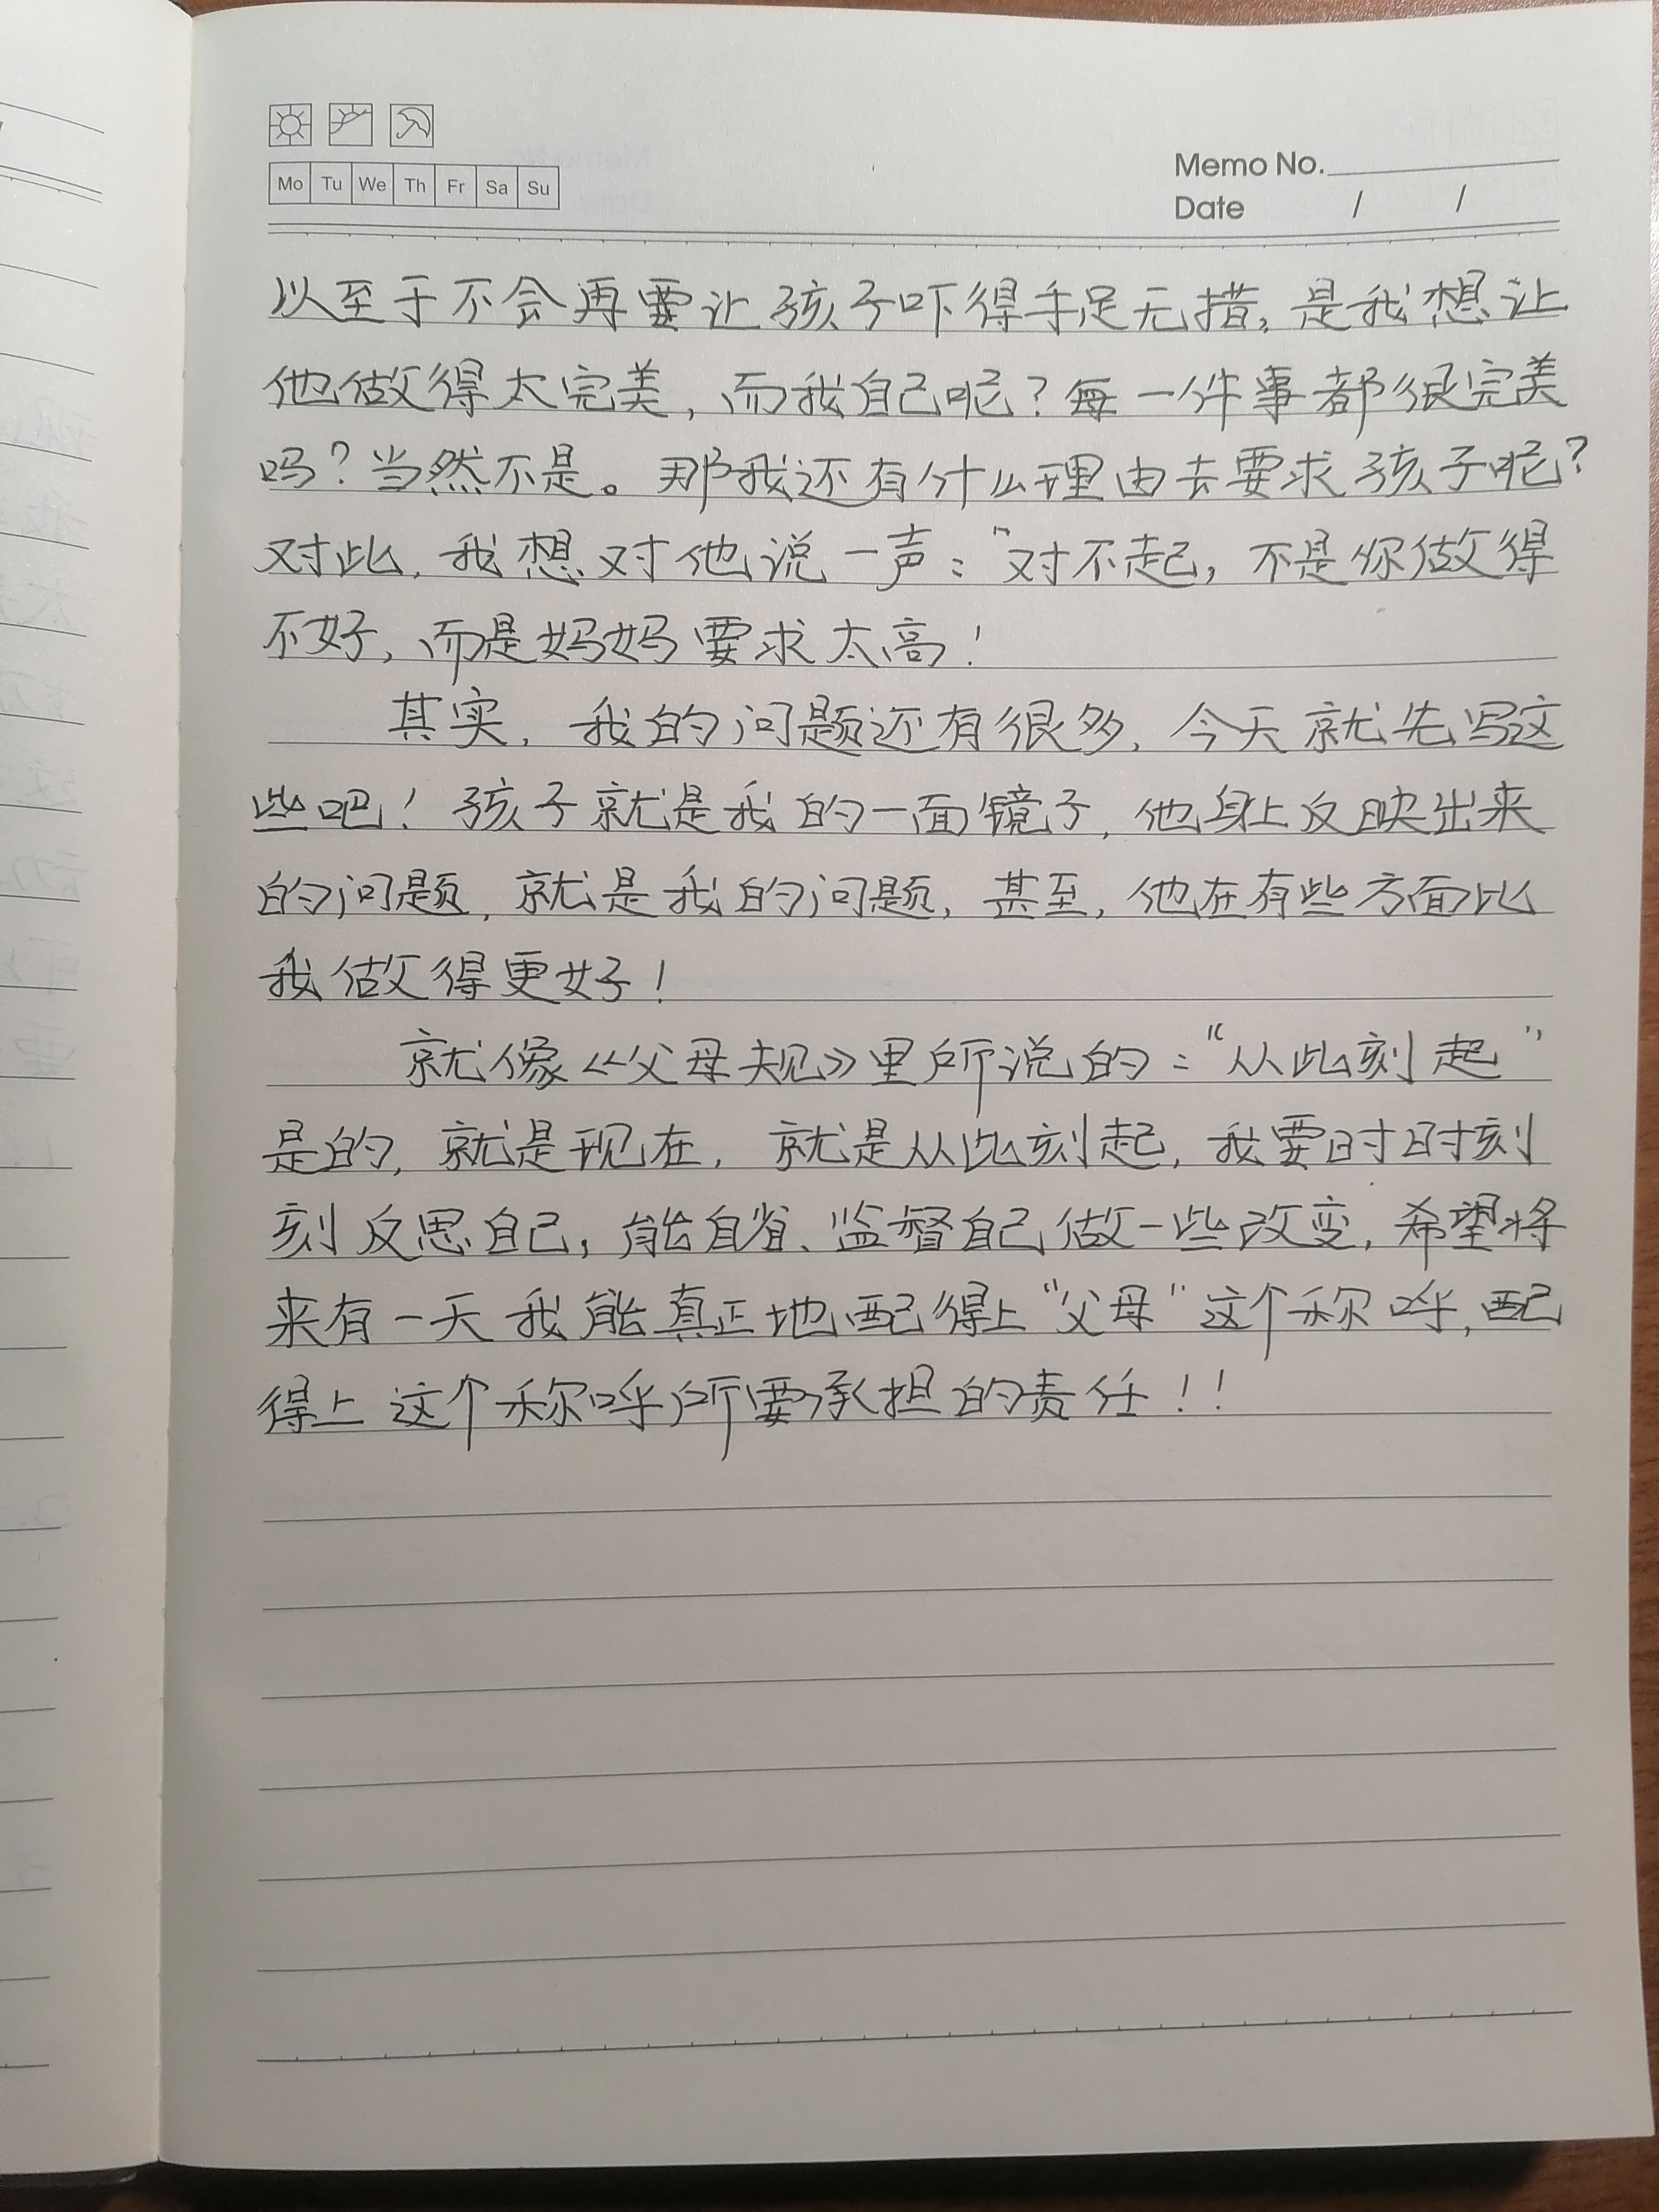 Mo Tu We Th Fr Sa Su
Memo No.
Date / /
以至于不会再要让孩子吓得手足无措,是我想让
他做得太完美,而我自己呢?每一件事都很完美
吗?当然不是。那我还有什么理由去要求孩子呢?
对此,我想对他说一声:“对不起,不是你做得
不好,而是妈妈要求太高!
其实,我的问题还有很多,今天就先写这
些吧!孩子就是我的一面镜子,他身上反映出来
的问题,就是我的问题,甚至,他在有些方面比
我做得更好!
就像《父母规》里所说的:“从此刻起”
是的,就是现在,就是从此刻起,我要时时刻
刻反思自己,能自省、监督自己做一些改变,希望将
来有一天我能真正地配得上“父母”这个称呼,配
得上这个称呼所要承担的责任!!